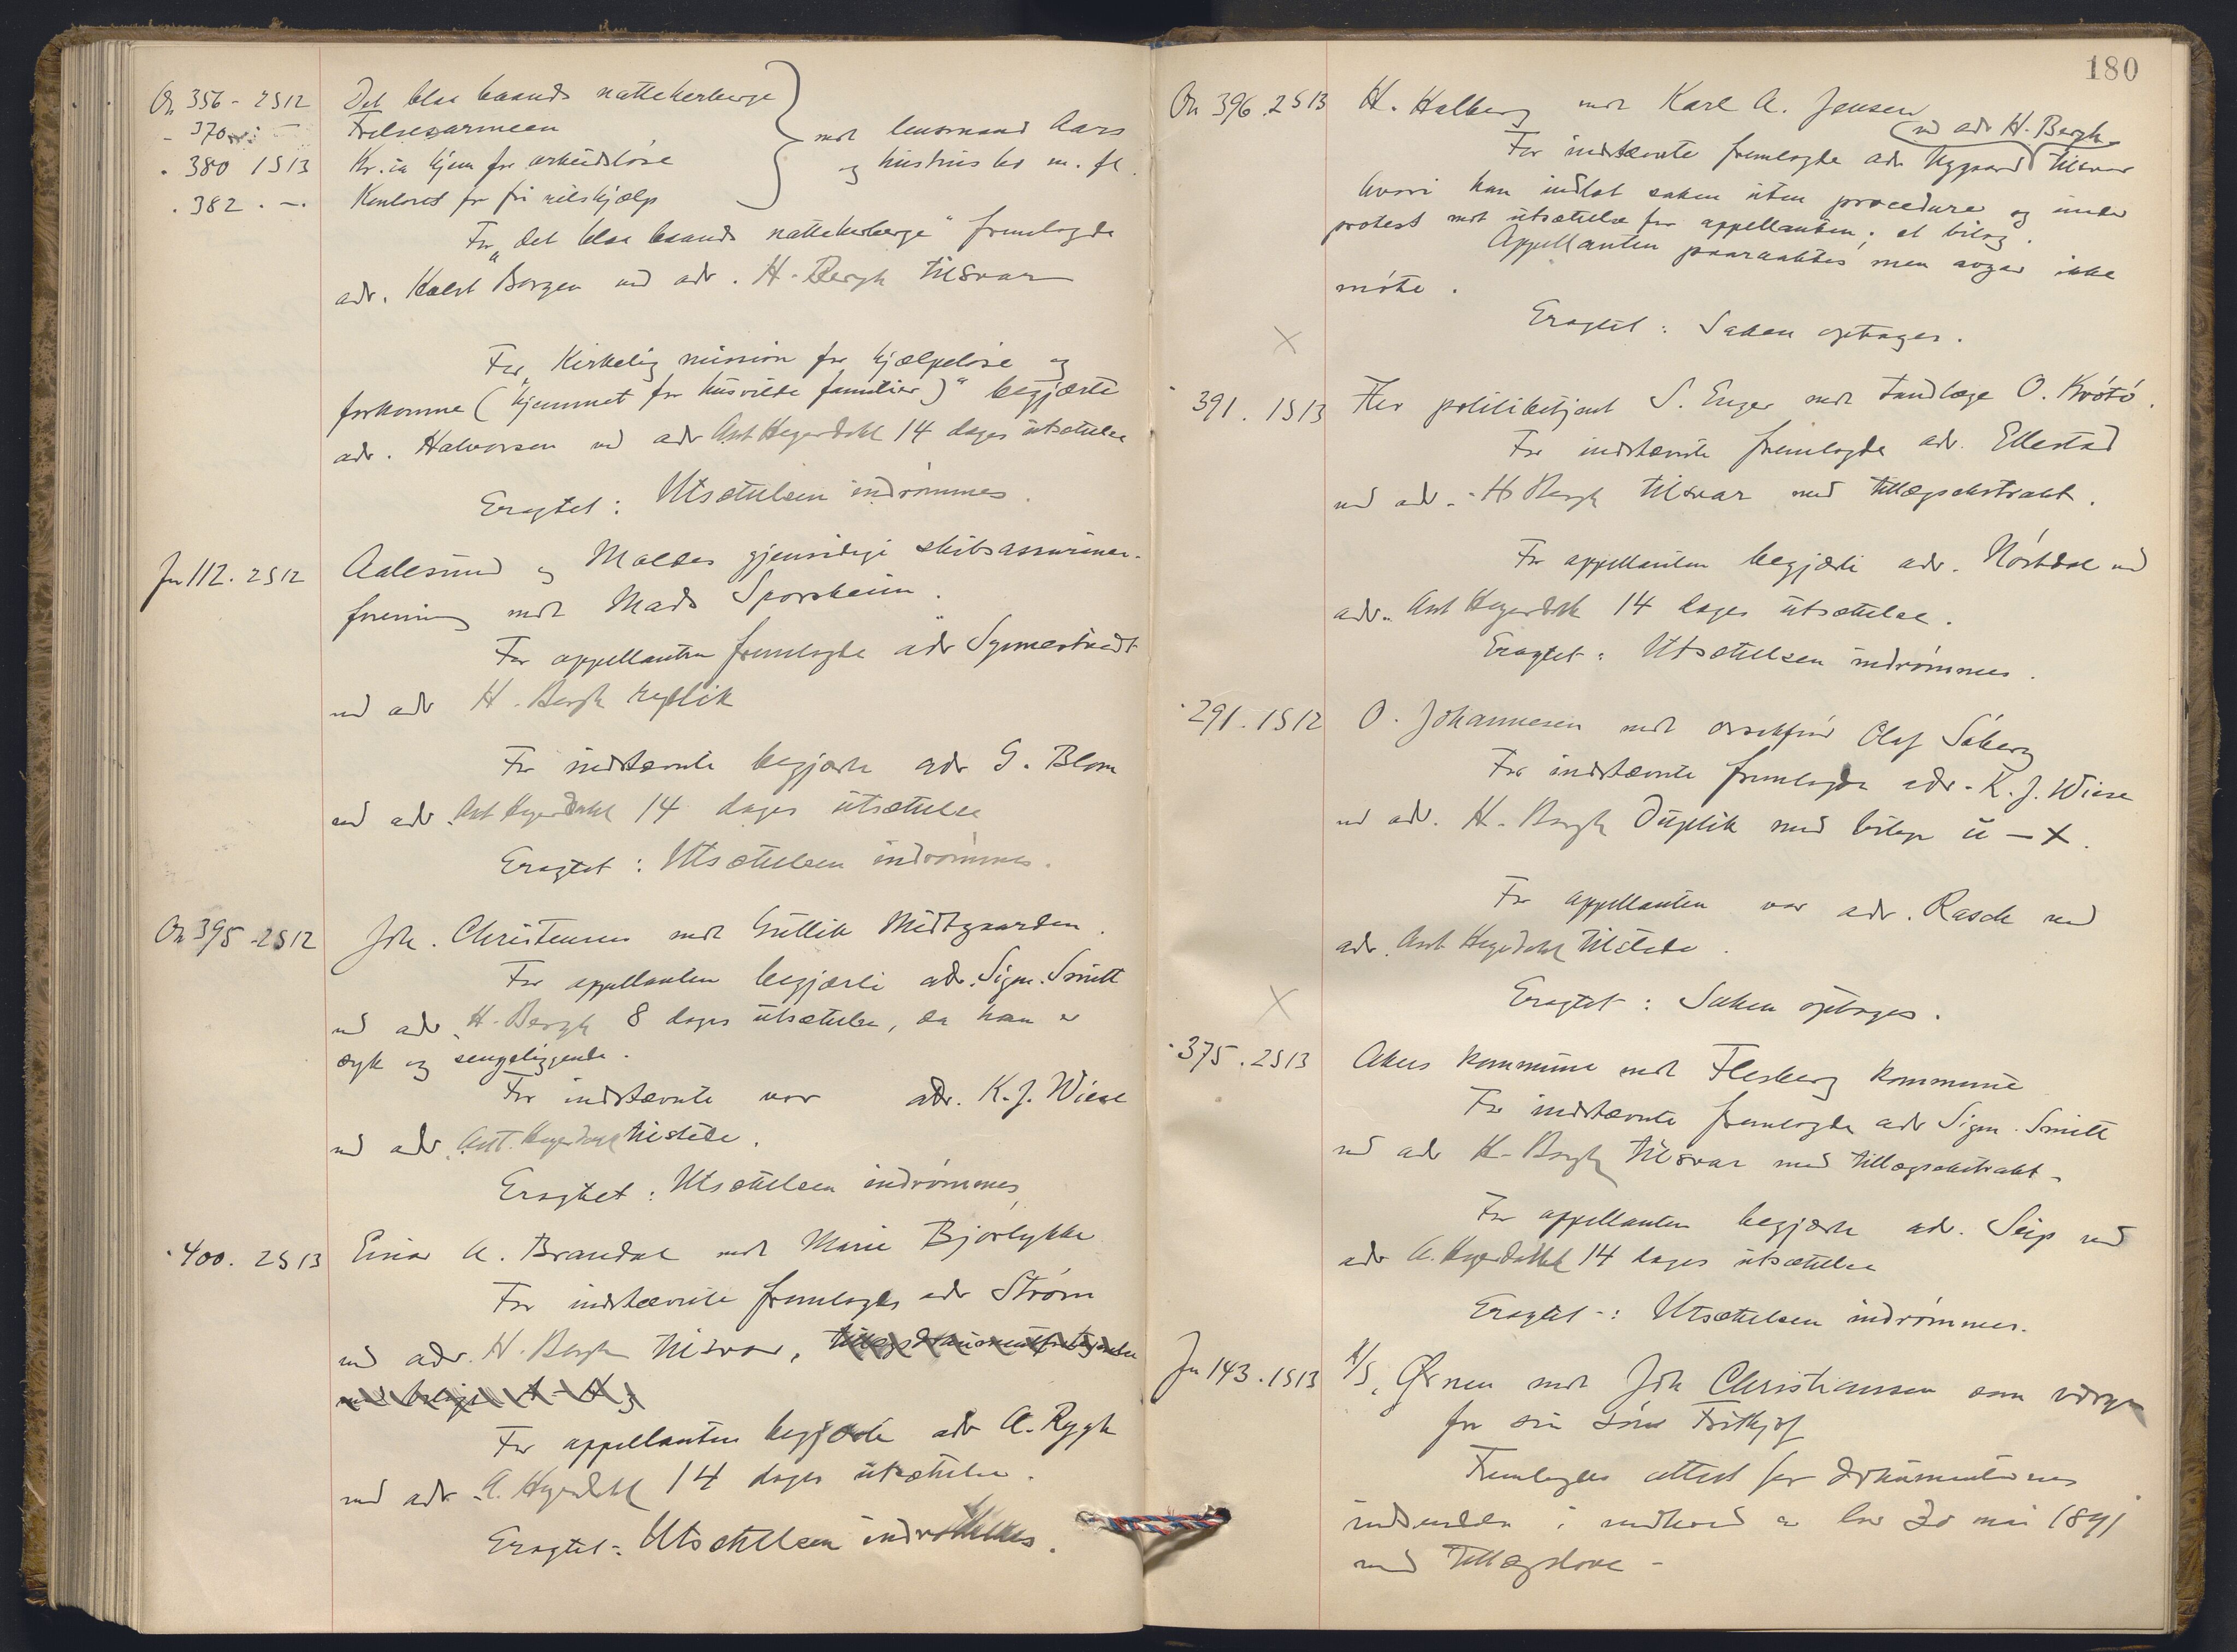 On 356 - 2S12 Det blaa baands natteherberge
- 370 - - Frelsesarmeen
. 380 1S13 Kr.ia hjem for arbeidsløse
. 382 . -. Kontoret for fri retshjælp
mot lensmand Aars
og hustrus bo m. fl.
For "det blaa baands natteherberge" fremlagde
adv. Borgen ved adv. H. Bergh tilsvar
For "Kirkelig mission for hjælpeløse og
forkomne (hjemmet for husvilde familier)" begjærte
adv. Halvorsen ved adv Ant Heyerdahl 14 dages utsættelse
Eragtet: Utsættelsen indrømmes.
Jn 112. 2S12 Aalesund og Moldes gjensidige skibsassurance-
forening mot Mads Sporsheim.
For appellanten fremlagde adv Synnestvedt
ved adv H. Bergh replik
For indstævnte begjærte adv G. Blom
ved adv. Ant Heyerdahl 14 dages utsættelse
Eragtet: Utsættelsen indrømmes.
On 395 - 2S12 Joh. Christensen mot Gullik Midtgaarden.
For appellanten begjærte adv. Sigm. Smitt
ved adv. H. Bergh 8 dages utsættelse, da han er
syk og sengeliggende.
For indstævnte var adv. K. J. Wiese
ved adv. Ant. Heyerdahl tilstede.
Eragtet: Utsættelsen indrømmes
. 400. 2S13 Einar A. Brandal mot Marie Bjørlykke
For indstævnte fremlagdes adv Strøm
ved adv. H. Bergh tilsvar,
For appellanten begjærte adv A. Rygh
ved adv. A. Heyerdahl 14 dages utsættelse.
Eragtet: Utsættelsen indrømmes.
180
On 396. 2S13 H. Halberg mot Karl A. Jensen
ved adv H. Bergh
For indstævnte fremlagde adv Nygaard tilsvar
hvori han indlot saken uten procedure og under
protest mot utsættelse for appellanten; et bilag.
Appellanten paaraaktes, men avgav ikke
møte.
Eragtet: Saken optages.
X
. 391. 1S13 Fhv politibetjent S. Enger mot tandlæge O. Krótó.
For indstævnte fremlagde adv. Ellestad
ved adv. H Bergh tilsvar med tillægsekstrakt.
For appellanten begjærte adv. Nørdal ved
adv. Ant Heyerdahl 14 dages utsættelse.
Eragtet: Utsættelsen indrømmes.
. 291. 1S12 O. Johannesen mot Olaf Søberg
For indstævnte fremlagde adv. K. J. Wiese
ved adv. H. Bergh Duplik med bilage u - X.
For appellanten var adv. Rasch ved
adv. Ant Heyerdahl tilstede.
Eragtet: Saken optages.
X
. 375. 2S13 Akers kommune mot Flesberg kommune
For indstævnte fremlagde adv Sigm. Smitt
ved adv H. Bergh tilsvar med tillægsekstrakt.
For appellanten begjærte adv. Seip ved
adv A. Heyerdahl 14 dages utsættelse
Eragtet: Utsættelsen indrømmes.
Jn 143. 1S13 A/S Ørnen mot Joh Christianssen som værge
for sin søn Fritjof
Fremlagdes attest for dokumenternes
indsendelse i medhold av lov 20 mai 1891
med Tillægslove -